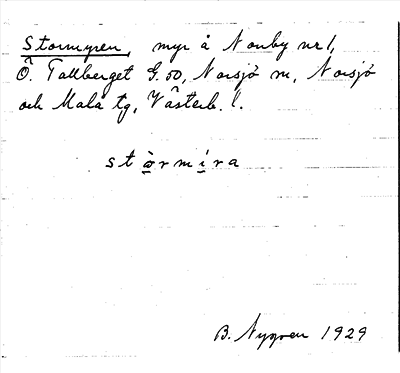 Stormyren, myr å Norrby nr 1,
Ö. Tallberget G. 50, Norsjö sn, Norsjö
och Malå tg, Västerb. l.
stòrmíra
B. Nygren 1929